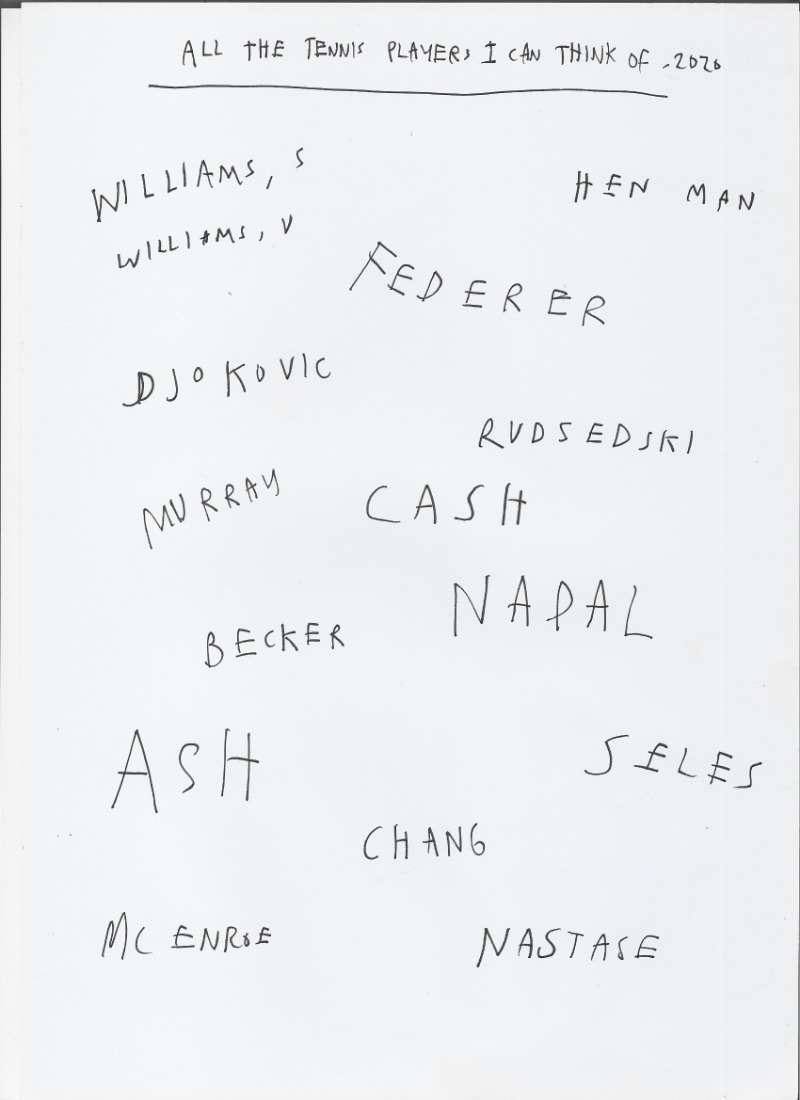 ALL THE TENNIS PLAYERS I CAN THINK OF .2020
WILLIAMS, S
HEN MAN
WILLIAMS, V
FEDERER
DJOKOVIC
RUDSEDSKI
MURRAY
CASH
NADAL
BECKER
ASH
SELES
CHANG
MC ENROE
NASTASE